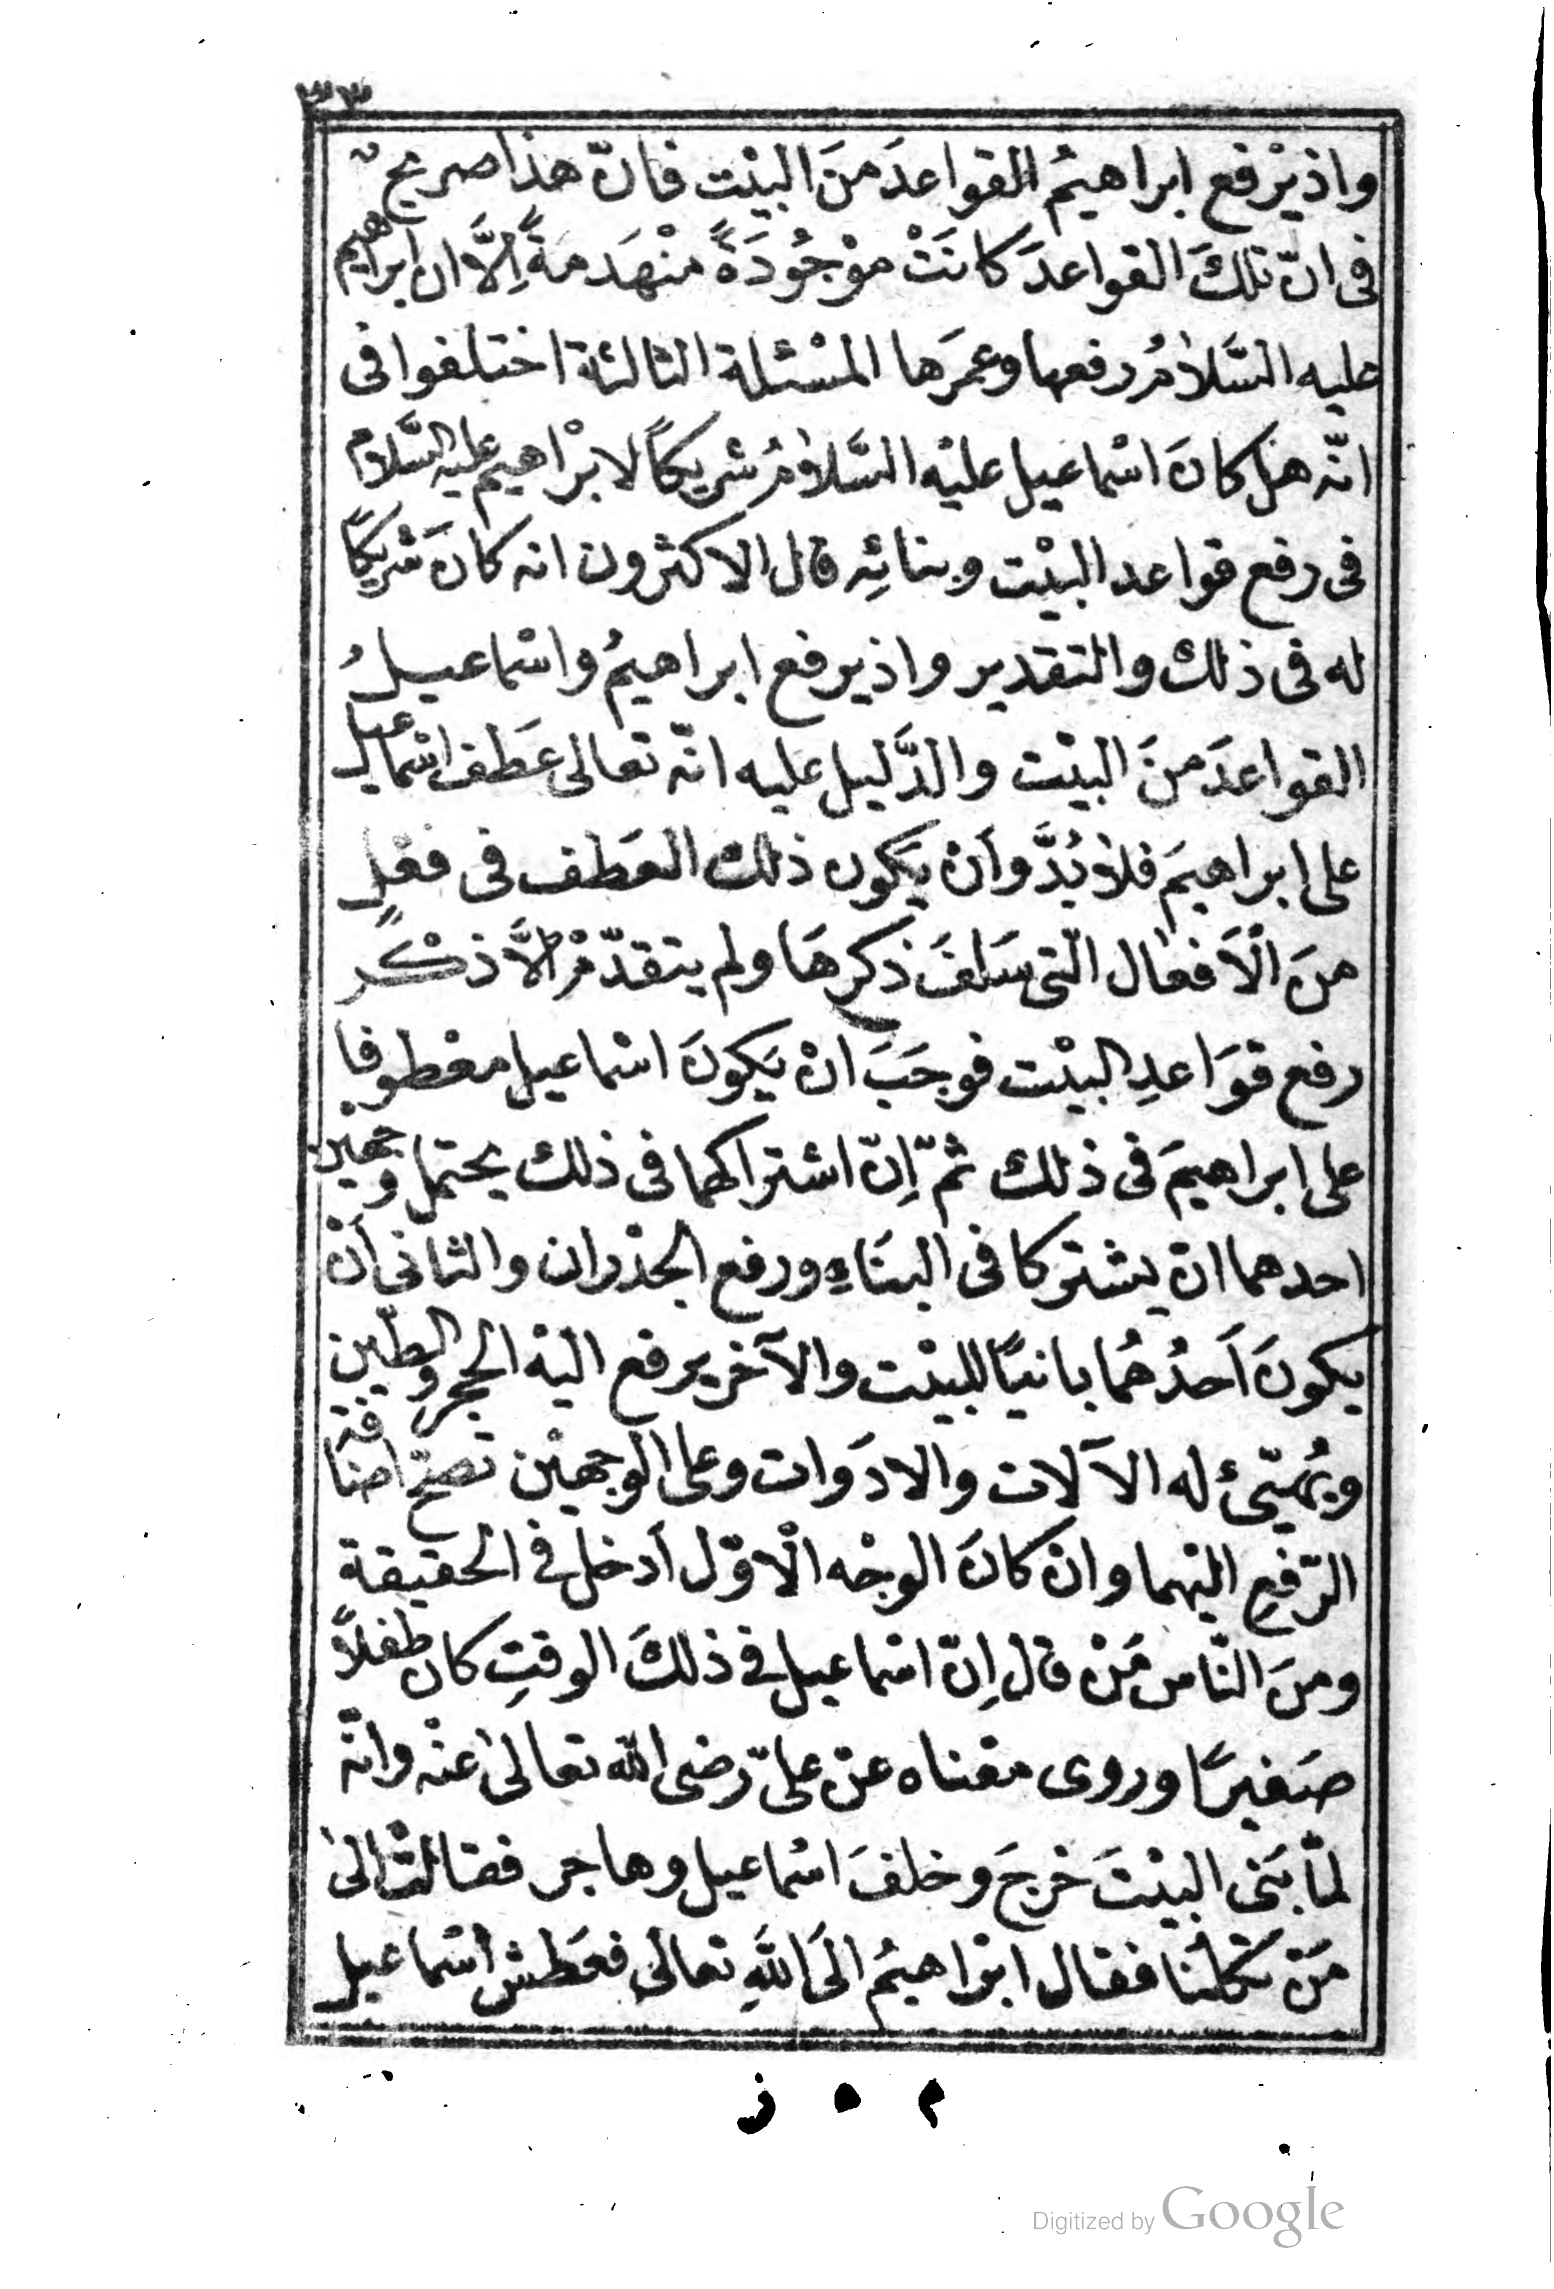 ٣٣
واذيْرفع ابراهيمُ القواعدَ منَ البيْت فانّ هذا صريح
فى انّ تلكَ القواعدَ كانَتْ موْجُودَةً منْهَدمةً اِلَّا ان ابراهيم
عليه السَّلامُ رفعها وعمرَها المسْئلة الثالثة اختلفوا فى
انّه هل كانَ اسْماعيل عليْه السَّلامُ شريكاً لابْراهيم عليه السَّلام
فى رفع قواعد البيْت وبنائِه قال الاكثرون انه كانَ شريكاً
له فى ذلك والتقدير واذيرفع ابراهيمُ واسْماعيلُ
القواعدَ منَ البيْت والدَّليل عليه انّه تعالى عَطَف اسْماعيل
على ابراهيمَ فلا بُدَّ وَانْ يَكون ذلك العَطف فى فعْلٍ
منَ الْاَفعال الّتى سَلفَ ذكرهَا ولم يتقدّمْ الَّا ذكْر
رفع قوَاعدِ البيْت فوجَبَ انْ يَكونَ اسْماعيل معْطوفا
على ابراهيمَ فى ذلك ثمّ اِنّ اشتراكهما فى ذلك يحتمل وجهين
احدهما انْ يشتركا فى البنَاءِ ورفع الجدْران والثانى اَنْ
يكونَ اَحدُهُما بانيًا للبيْت والآخر يرفع اليْه الحجر والطّين
ويُهيّئ له الآلات والادَوات وعلى الوجهيْن تصحّ اضافة
الرّفعِ اليْهما وانْ كانَ الوجْه الْاوّل اَدخل فى الحقيقة
ومنَ النّاس مَنْ قال اِنّ اسْماعيل فى ذلكَ الوقتِ كان طفلاً
صَغيرًا وروى معْناه عنْ علىّ رضى الله تعالىٰ عنْه وانّه
لمّا بَنى البيْتَ خرجَ وخلفَ اسْماعيل وهاجر فقالتْ الىٰ
مَنْ تَكلنَا فقال ابْراهيمُ الَى اللّٰهِ تعالى فعَطش اسْماعيل
م ٥ ز
Digitized by Google